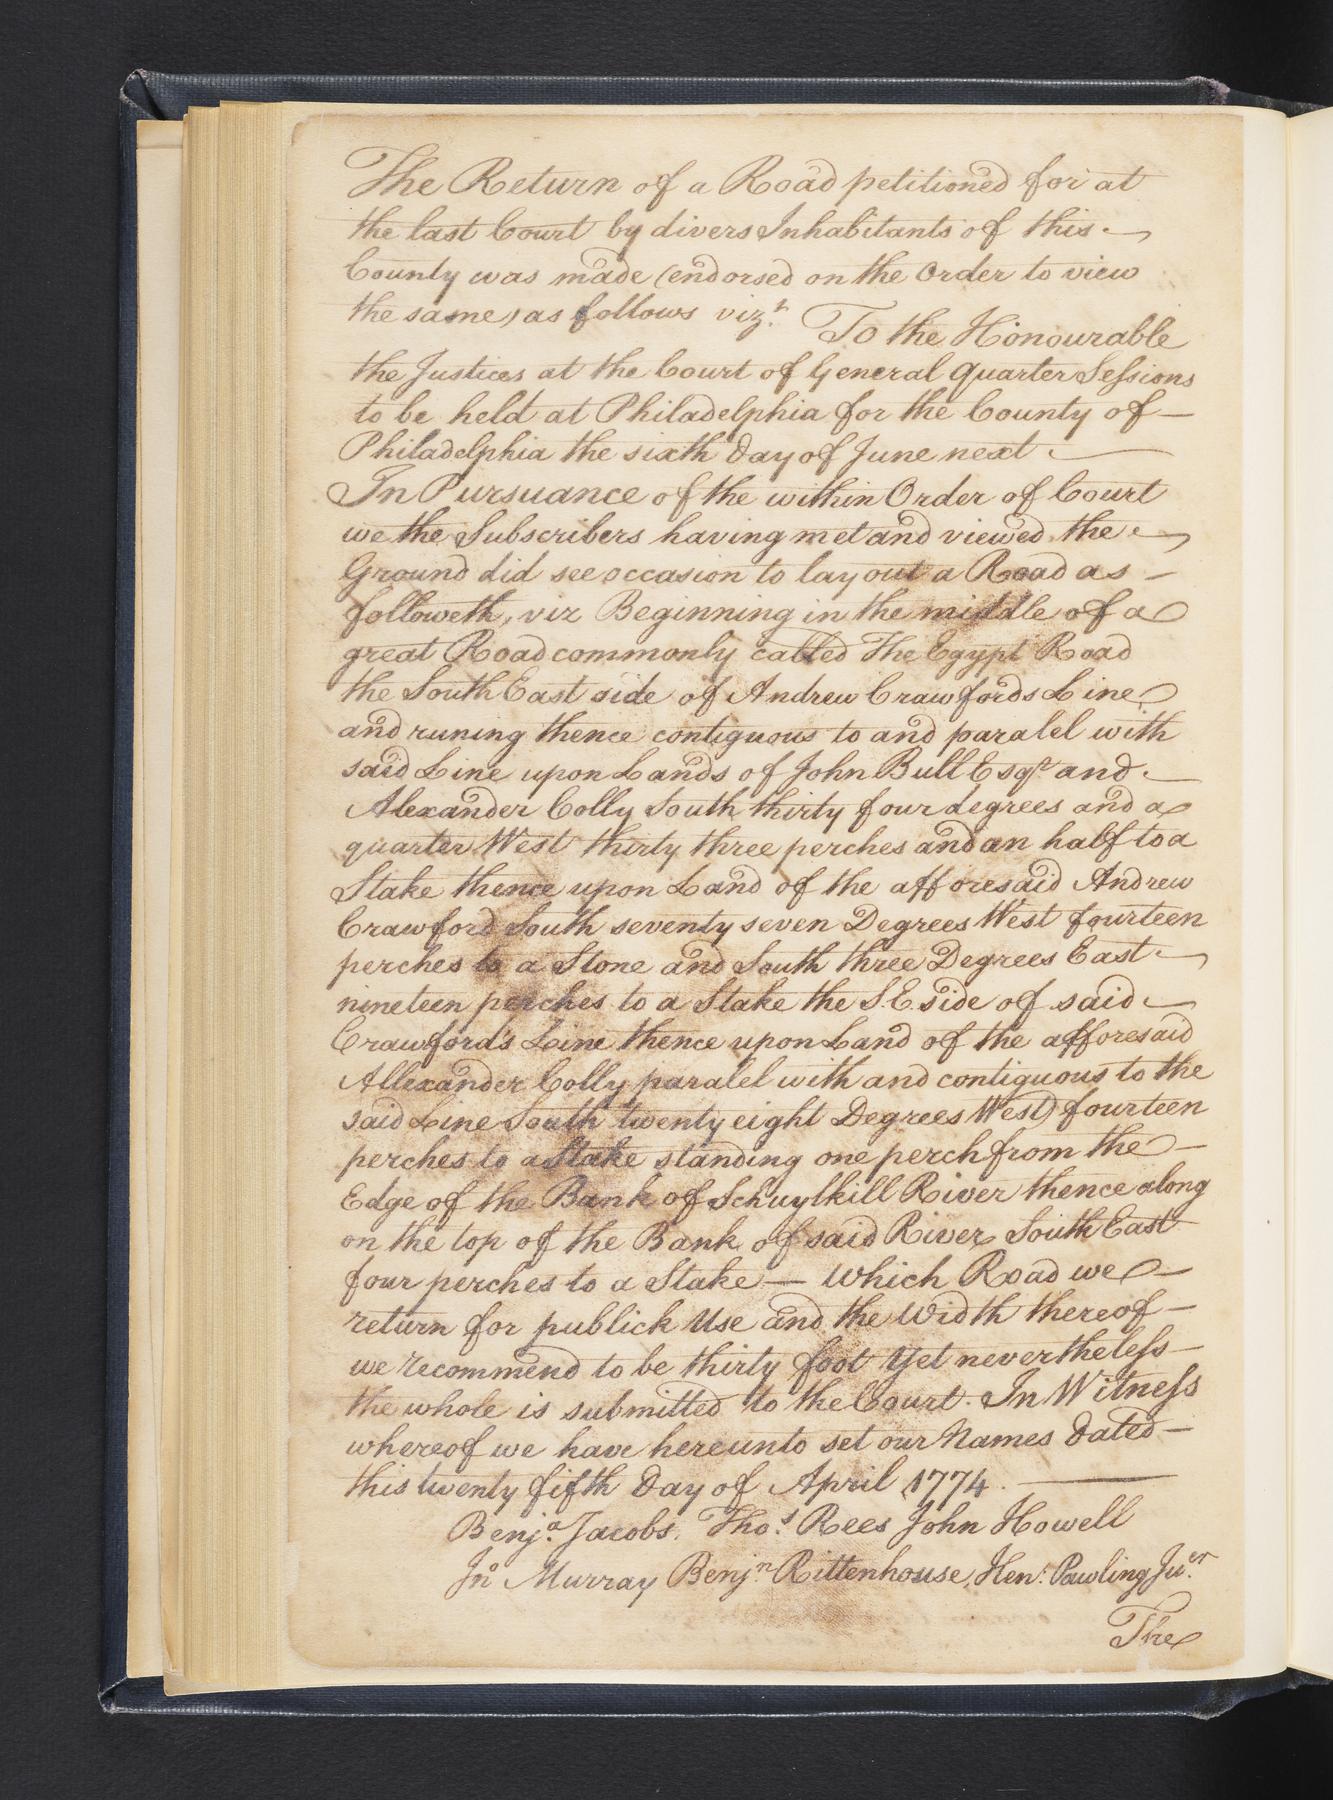 The Return of a Road petitioned for at
the last Court by divers Inhabitants of this
County was made (endorsed on the Order to view
the same) as follows viz.t To the Honourable
the Justices at the Court of General Quarter Sessions
to be held at Philadelphia for the County of —
Philadelphia the sixth Day of June next
In Pursuance of the within Order of Court
we the Subscribers having met and viewed the
Ground did see occasion to lay out a Road as —
followeth, viz Beginning in the middle of a
great Road commonly called The Egypt Road
the South East side of Andrew Crawfords Line
and runing thence contiguous to and paralel with
said Line upon Lands of John Bull Esqr. and
Alexander Colly South thirty four degrees and a
quarter West thirty three perches and an half to a
Stake thence upon Land of the afforesaid Andrew
Crawford South seventy seven Degrees West fourteen
perches to a Stone and South three Degrees East
nineteen perches to a Stake the S.E. side of said
Crawford's Line thence upon Land of the afforesaid
Allexander Colly paralel with and contiguous to the
said Line South twenty eight Degrees West) fourteen
perches to a Stake standing one perch from the —
Edge of the Bank of Schuylkill River thence along
on the top of the Bank of said River South East
four perches to a Stake — which Road we —
return for publick Use and the Width thereof —
we recommend to be thirty foot Yet nevertheless —
the whole is submitted to the Court. In Witness
whereof we have hereunto set our Names Dated —
this twenty fifth Day of April 1774.
Benj.a Jacobs. Tho.s Rees John Howell
Jno Murray Benj.n Rittenhouse, Hen: Pawling Ju.er
The